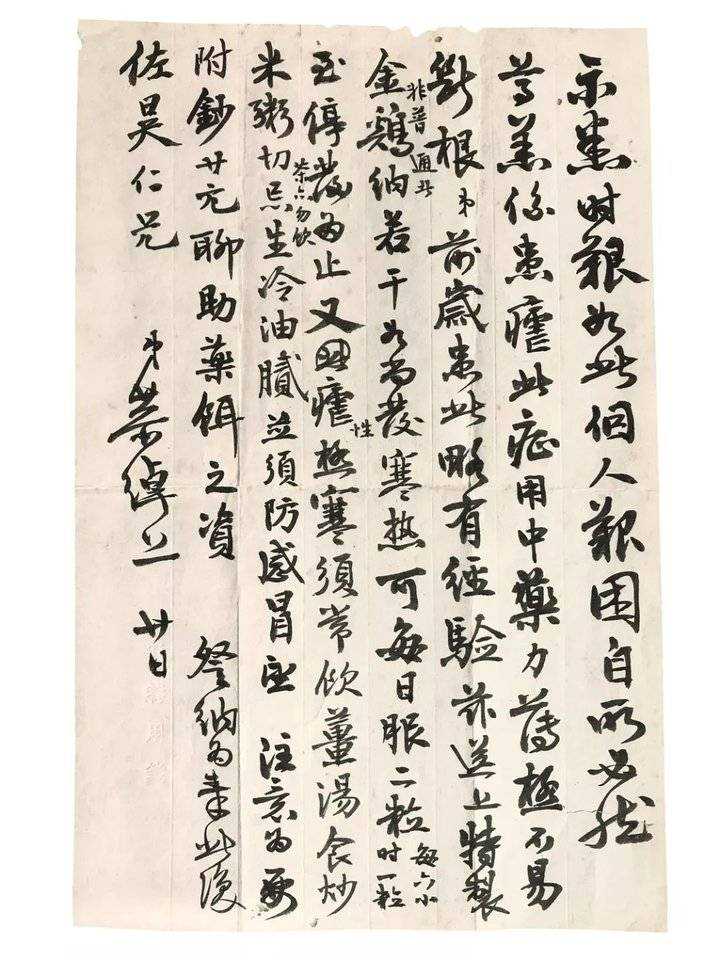 示悉时艰如此個人艱困自所必然
尊恙係患瘧此症用中藥力薄極不易
斷根弟前歲患此略有經驗茲送上特製
非普通品
金鷄納若干如尚發寒热可每日服二粒每六小时一粒
至停發為止又因瘧性極寒須常飲薑湯食炒
米粥切忌生冷油膩並須防感冒
茶亦勿飲
注意為要
附鈔廿元聊助藥餌之資
詧納為幸此復
佐昊仁兄
弟榮綽上 廿日